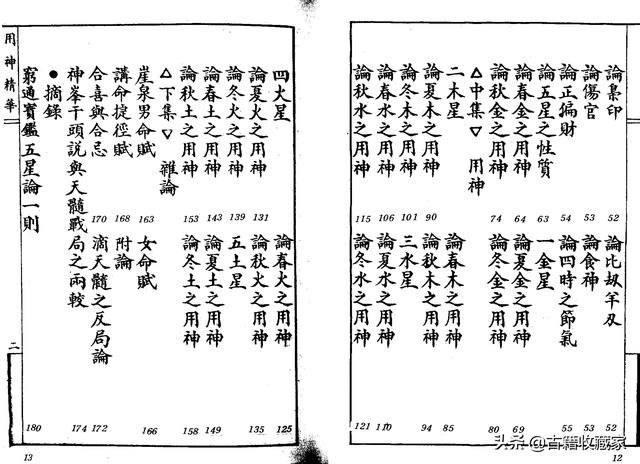 論梟印 52 論比劫羊刃 52
論傷官 53 論食神 53
論正偏財 54 論四時之節氣 55
論五星之性質 63 一金星
論春金之用神 64 論夏金之用神 69
論秋金之用神 74 論冬金之用神 80
△中集▽ 用神
二木星 論春木之用神 85
論夏木之用神 90 論秋木之用神 94
論冬木之用神 101 三水星
論春水之用神 106 論夏水之用神 110
論秋水之用神 115 論冬水之用神 121
12
四火星 論春火之用神 125
論夏火之用神 131 論秋火之用神 135
論冬火之用神 139 五土星
論春土之用神 143 論夏土之用神 149
論秋土之用神 153 論冬土之用神 158
△下集▽ 雜論
崖泉男命賦 163 女命賦 166
講命捷徑賦 168 附論
合喜與合忌 170 滴天髓之反局論 172
神峯干頭說與天髓戰局之兩較 174
●摘錄
窮通寶鑑五星論一則 180
用神精華
二
13
头条 @古籍收藏家